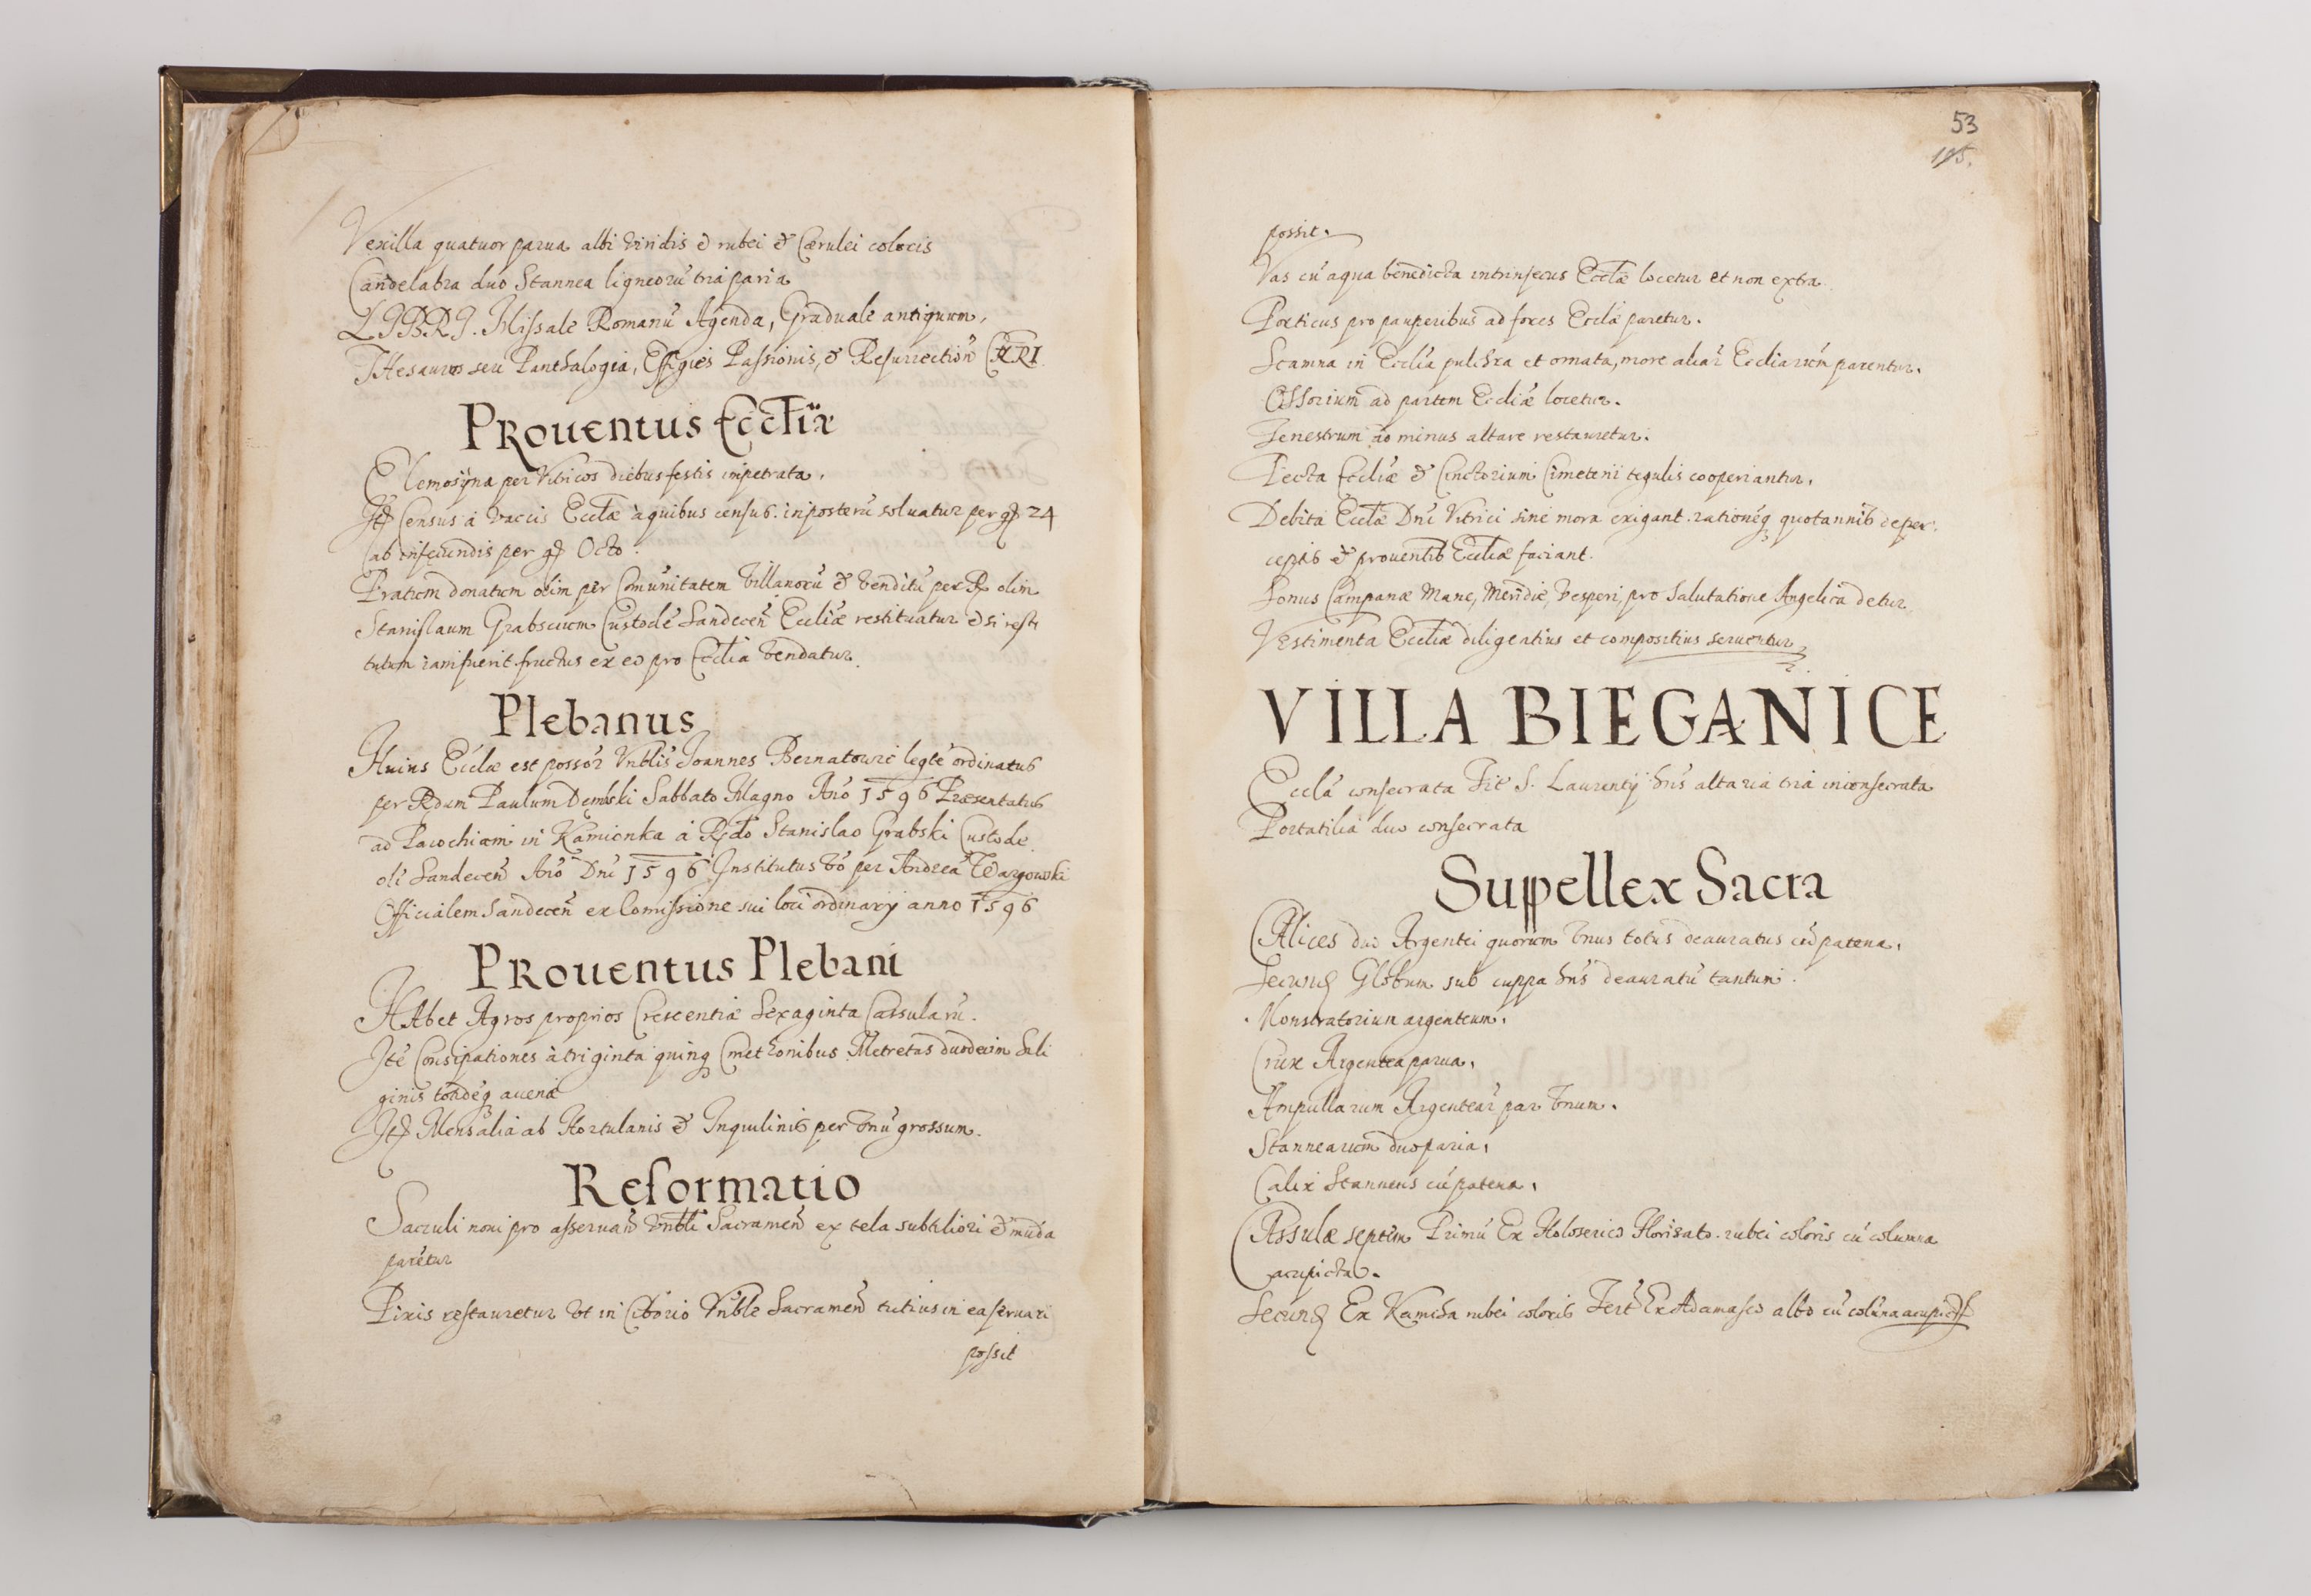 Vexilla quatuor parua albi viridis & rubei & Cærulei coloris
Candelabra duo Stannea ligneorū tria paria
LIBRI. Missale Romanū Agenda, Graduale antiquum,
THesaurus seu Panthalogia, Effigies Passionis, & Resurrection̄ CHRI
PRouentus Ecctiæ
Elemosÿna per Vitricos diebus festis inpetrata,
Census á vaccis Ecclæ àquibus census inposterū soluatur per 24
ab infecundis per Octo.
Pratum donatum olim per Comunitatem villanorū & venditū per R olim
Stanislaum Grabscium Custodē Sandecen̄ Eccliæ restituatur & si resti
tutum iam fuerit fructus ex eo pro Ecclia vendatur.
Plebanus
Huius Ecclæ est possor Vnblis Joannes Bernatowic legtē ordinatus
per Rdum Paulum Dembski Sabbato Magno Año 1596 Præsentatus
ad Parochiam in Kamionka á Rdo Stanislao Grabski Custode
oli Sandecen̄ Año Dni 1596 Institutus vō per Andreā Wargowski
Officialem Sandecen̄ ex Comissione sui loci ordinarÿ anno 1596
PRouentus Plebani
HAbet Agros proprios Crescentiæ Sexaginta Cassularū.
Itē Consipationes à triginta quinq Cmethonibus Metretas duodecim Sili
ginis totideq auenæ
Mensalia ab Hortulanis & Inquilinis per vnū grossum.
Reformatio
Sacculi noui pro asseruan̄ Vnbli Sacramen̄ ex tela subtiliori & mūda
parētur
Pixis restauretur vt in Ciborio Vnble Sacramen̄ tutius in ea seruari
possit
53
105.
possit.
Vas cū aqua benedicta intrinsecus Ecclæ locetur et non extra
Porticus pro pauperibus ad fores Ecclæ paretur.
Scamna in Ecclia pulchra et ornata, more aliar Eccliarum parentur.
Ossorium ad partem Eccliæ locetur.
Fenestrum ad minus altare restauretur.
Tecta Eccliæ & Cinctorium Cimeterii tegulis cooperiantur,
Debita Ecclæ Dni Vitrici sine mora exigant. rationeq quotannis de per
ceptis & prouentib Eccliæ faciant.
Sonus Campanæ Mane, Meridie, Vesperi, pro Salutatione Angelica detur.
VEstimenta Eccliæ diligentius et compositius seruentur
VILLA BIEGANICE
Ecclā consecrata Tit S. Laurentÿ hñs altaria tria inconsecrata
Portatilia duo consecrata
Suppellex Sacra
CAlices duo Argentei quorum vnus totus deauratus cū patena,
Globum sub cuppa hñs deauratū tantum.
Monstratorium argenteum.
Crux Argentea parua,
Ampullarum Argentear par vnum.
Stannearum duo paria,
Calix Stanneus cū patena,
CAssulæ septem Primū Ex Holoserico Florisato. rubei coloris cū columna
acupicta.
Ex Kamcha rubei coloris Tert Ex Adamasco albo cū colūna acupicta